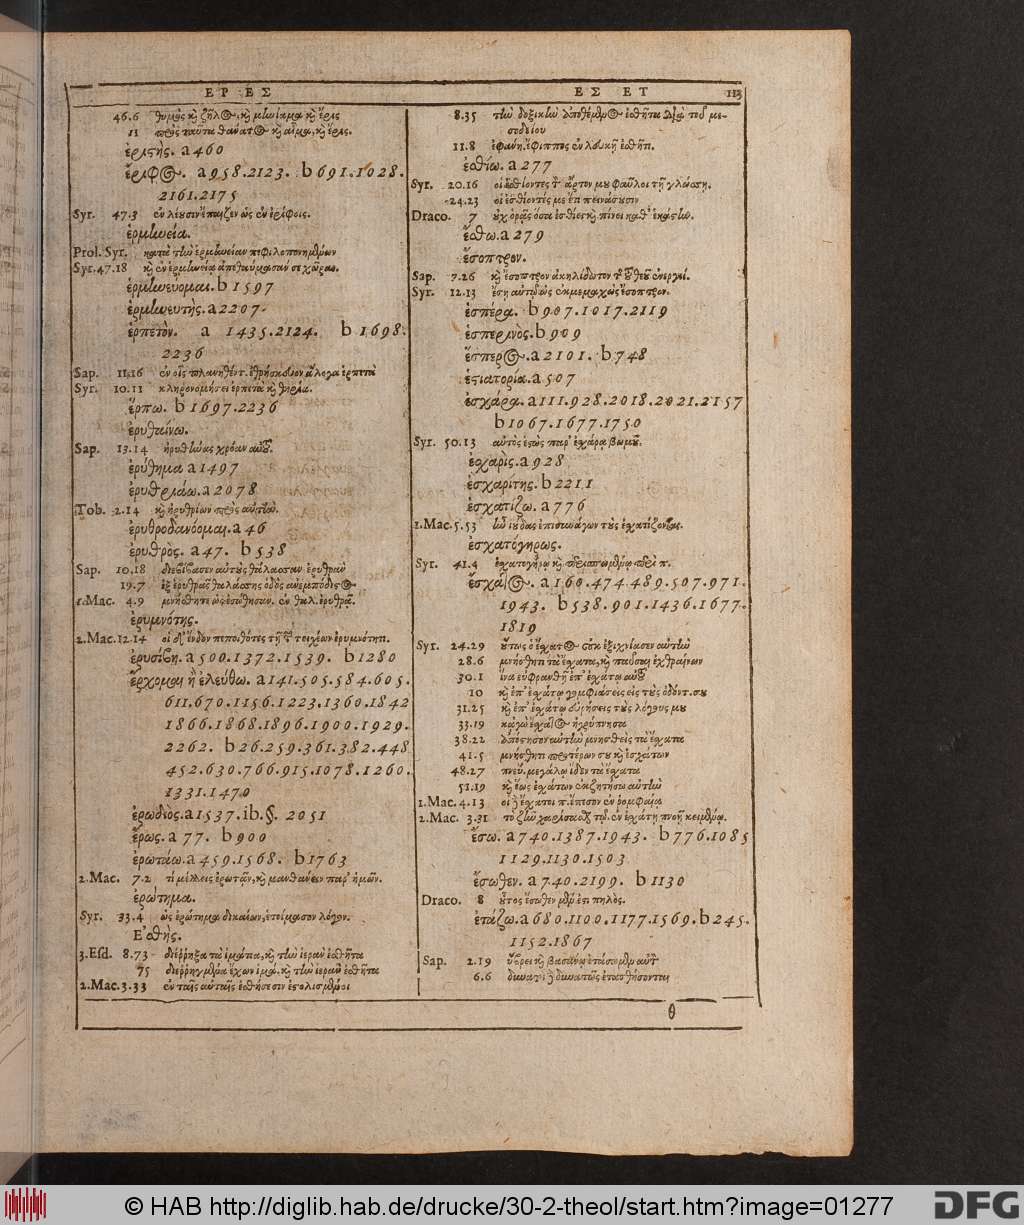 ΕΡ ΕΣ
46.6 θυμὸς κὶ ζῆλος, κὶ μίωιμα κὶ ἔρις
11 πρὸς ταῦτα θάνατος κὶ αἷμα, κὶ ἔρις.
ἐριστὴς. a 460
ἔριφος. a 958.2123. b 691.1028.
2161.2175
Syr. 47.3 ἐν λέουσιν ἔπαιζεν ὡς ἐν ἐρίφοις.
ἑρμηνεία.
Prol. Syr. κατὰ τὴν ἑρμηνείαν πεφιλοπονημένων
Syr. 47.18 κὶ ἐν ἑρμηνείᾳ ἀπεθαύμασάν σε χῶραι.
ἑρμηνεύομαι. b 1597
ἑρμηνευτὴς. a 2207.
ἑρπετὸν. a 1435.2124. b 1698.
2236
Sap. 11.16 ἐν οἷς πλανηθέντ. ἐθρήσκευον ἄλογα ἑρπετὰ
Syr. 10.11 κληρονομήσει ἑρπετὰ κὶ θηρία.
ἕρπω. b 1697.2236
ἐρυθαίνω.
Sap. 13.14 ἐρυθήνας χρόαν αὐτοῦ.
ἐρύθημα a 1497
ἐρυθριάω. a 2078
Tob. 2.14 κὶ ἠρυθρίων πρὸς αὐτήν.
ἐρυθροδανόομαι. a 46
ἐρυθρὸς. a 47. b 538
Sap. 10.18 διεβίβασεν αὐτοὺς θάλασσαν ἐρυθρὰν
19.7 ἐξ ἐρυθρᾶς θαλάσσης ὁδὸς ἀνεμπόδιστος
1. Mac. 4.9 μνήσθητε ὡς ἐσώθησαν. ἐν θαλ. ἐρυθρᾷ.
ἐρυμνότης.
2. Mac. 12.14 οἱ δ' ἔνδον πεποιθότες τῇ τῶν τειχέων ἐρυμνότητι.
ἐρυσίβη. a 500.1372.1539. b 1280
ἔρχομαι ἢ ἐλεύθω. a 141.505.584.605.
611.670.1156.1223.1360.1842
1866.1868.1896.1900.1929.
2262. b 26.259.361.382.448
452.630.766.915.1078.1260.
1331.1470
ἐρωδιὸς. a 1537. ib. §. 2051
ἔρως. a 77. b 900
ἐρωτάω. a 459.1568. b 1763
2. Mac. 7.2 τί μέλλεις ἐρωτᾷν, κὶ μανθάνειν παρ' ἡμῶν.
ἐρώτημα.
Syr. 33.4 ὡς ἐρώτημα δικαίων, ἑτοίμασον λόγον.
Ε'σθὴς.
3. Esd. 8.73 διέῤῥηξα τὰ ἱμάτια, κὶ τὴν ἱερὰν ἐσθῆτα
75 διεῤῥηγμένα ἔχων ἱμά. κὶ τὴν ἱερὰν ἐσθῆτα
2. Mac. 3.33 ἐν ταῖς αὐταῖς ἐσθήσεσιν ἐστολισμένοι
ΕΣ ΕΤ 113
8.35 τὴν δοξικὴν ἀποθέμενος ἐσθῆτα διὰ τοῦ με-
σογείου
11.8 ἐφάνη. ἔφιππος ἐν λευκῇ ἐσθῆτι.
ἐσθίω. a 277
Syr. 20.16 οἱ ἐσθίοντες τὸν ἄρτον μου φαῦλοι τῇ γλώσσῃ.
24.23 οἱ ἐσθίοντές με ἔτι πεινάσουσιν
Draco. 7 οὐχ ὁρᾷς ὅσα ἐσθίει κὶ πίνει καθ' ἑκάστην.
ἔσθω. a 279
ἔσοπτρον.
Sap. 7.26 κὶ ἔσοπτρον ἀκηλίδωτον τῆς τοῦ θεοῦ ἐνεργεί.
Syr. 12.13 ἔσῃ αὐτῷ ὡς ἐκμεμαχὼς ἔσοπτρον.
ἑσπέρα. b 907.1017.2119
ἑσπερινὸς. b 909
ἕσπερος. a 2101. b 748
ἑστιατορία. a 507
ἐσχάρα. a 111.928.2018.2021.2157
b 1067.1677.1750
Syr. 50.13 αὐτὸς ἑστὼς παρ' ἐσχάρᾳ βωμοῦ.
ἐσχαρὶς. a 928
ἐσχαρίτης. b 2211
ἐσχατίζω. a 776
1. Mac. 5.53 ἦν ἰούδας ἐπισυνάγων τοὺς ἐσχατίζοντας.
ἐσχατόγηρως.
Syr. 41.4 ἐσχατογήρῳ κὶ περισπωμένῳ περὶ π.
ἔσχατος. a 160.474.489.507.971.
1943. b 538.901.1436.1677.
1819
Syr. 24.29 οὕτως ὁ ἔσχατος οὐκ ἐξιχνίασεν αὐτὴν
28.6 μνήσθητι τὰ ἔσχατα, κὶ παῦσαι ἐχθραίνων
30.1 ἵνα εὐφρανθῇ ἐπ' ἐσχάτῳ αὐτοῦ
10 κὶ ἐπ' ἐσχάτῳ γομφιάσεις εἰς τοὺς ὀδόντ. σου
31.25 κὶ ἐπ' ἐσχάτῳ εὑρήσεις τοὺς λόγους μου
33.19 κἀγὼ ἔσχατος ἠγρύπνησα
38.22 ἀπόστησον αὐτὴν μνησθεὶς τὰ ἔσχατα
41.5 μνήσθητι προτέρων σου κὶ ἐσχάτων
48.27 πνεύ. μεγάλῳ εἶδεν τὰ ἔσχατα
51.19 κὶ ἕως ἐσχάτων ἐκζητήσω αὐτὴν
1. Mac. 4.13 οἱ δὲ ἔσχατοι π. ἔπεσον ἐν ῥομφαίᾳ
2. Mac. 3.31 τὸ ζῆν χαρίσασθαι τῷ ἐν ἐσχάτῃ πνοῇ κειμένῳ.
ἔσω. a 740.1387.1943. b 776.1085
1129.1130.1503
ἔσωθεν. a 740.2199. b 1130
Draco. 8 οὗτος ἔσωθεν μέν ἐστι πηλὸς.
ἐτάζω. a 680.1100.1177.1569. b 245.
1152.1867
Sap. 2.19 ὕβρει κὶ βασάνῳ ἐτάσωμεν αὐτὸν
6.6 δυνατοὶ δὲ δυνατῶς ἐτασθήσονται
θ
© HAB http://diglib.hab.de/drucke/30-2-theol/start.htm?image=01277
DFG